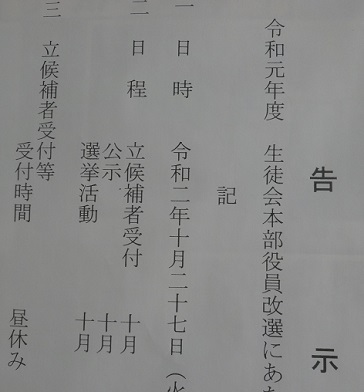 告　示
令和元年度　生徒会本部役員改選にあ
記
一　日　時　令和二年十月二十七日（火
二　日　程　立候補者受付　十月
公示　十月
選挙活動　十月
三　立候補者受付等
受付時間　昼休み